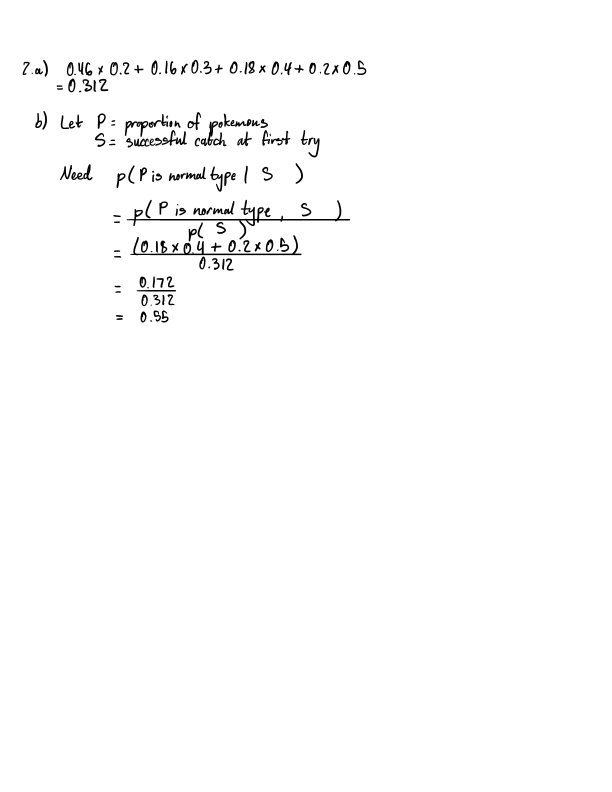 2.a) 0.46 × 0.2 + 0.16 × 0.3 + 0.18 × 0.4 + 0.2 × 0.5
= 0.312
b) Let P = proportion of pokemons
S = successful catch at first try
Need p(P is normal type | S )
= p( P is normal type , S )
p( S )
= (0.18 × 0.4 + 0.2 × 0.5)
0.312
= 0.172
0.312
= 0.55